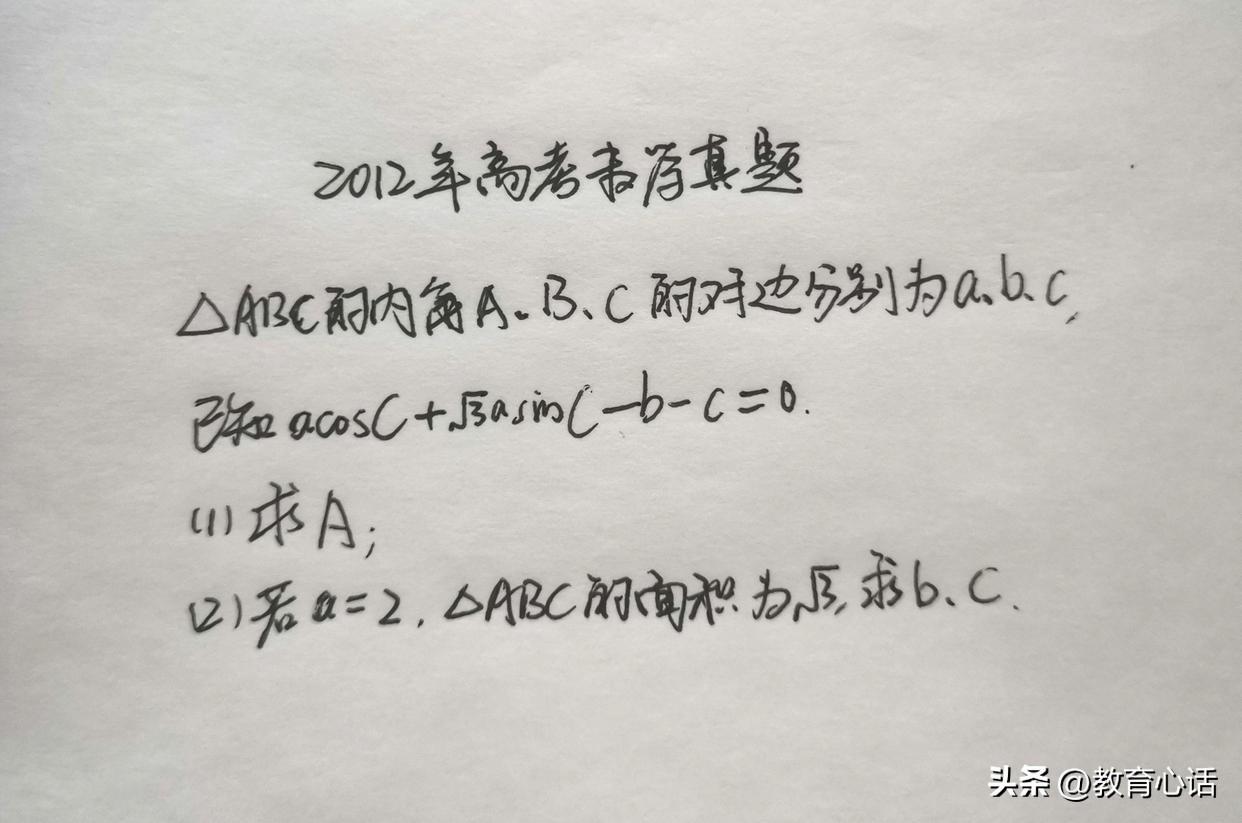 2012年高考数学真题
△ABC的内角A、B、C的对边分别为a、b、c,
已知acosC+√3asinC-b-c=0.
(1)求A;
(2)若a=2,△ABC的面积为√3,求b、c.
头条 @教育心话